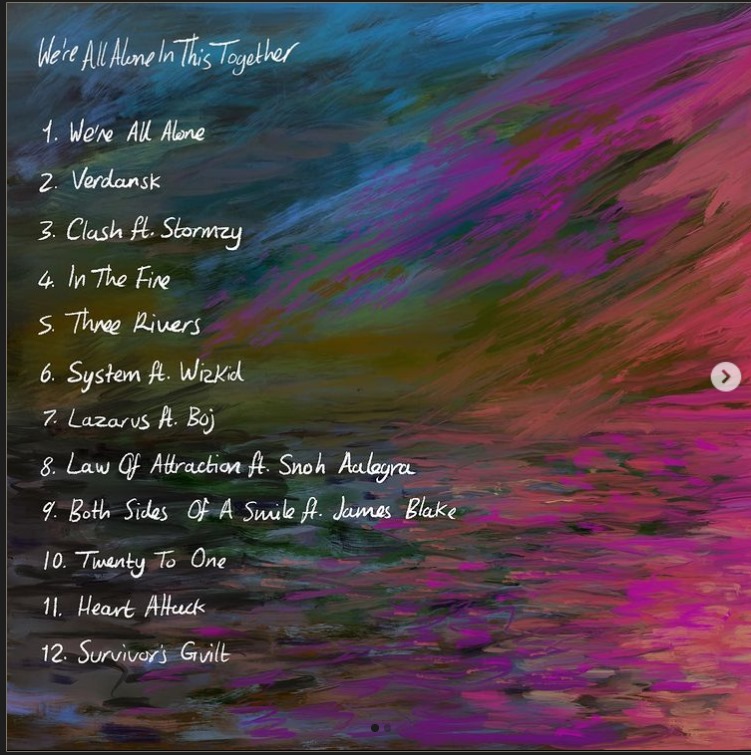 We're All Alone In This Together
1. We're All Alone
2. Verdansk
3. Clash ft. Stormzy
4. In The Fire
5. Three Rivers
6. System ft. Wizkid
7. Lazarus ft. Boj
8. Law Of Attraction ft. Snoh Aalegra
9. Both Sides Of A Smile ft. James Blake
10. Twenty To One
11. Heart Attack
12. Survivor's Guilt